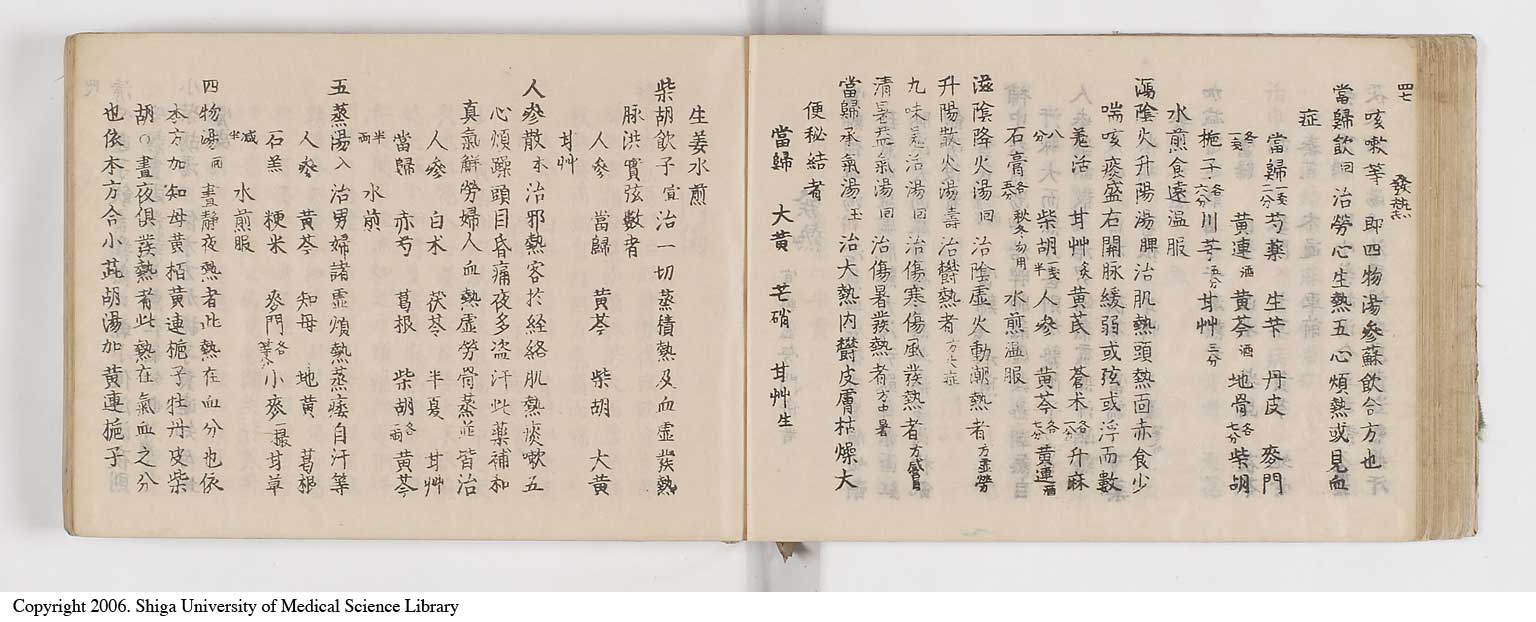 四七 發熱
咳嗽等 即四物湯參蘇飲合方也
當歸飲回 治勞心生熱五心煩熱或見血
症
當歸一戔二分 芍藥 生芐 丹皮 麥門
各一戔 黄連酒 黄芩酒 地骨各七分 柴胡
梔子各六分 川芎五分 甘艸三分
水煎食遠温服
瀉陰火升陽湯脾 治肌熱頭熱面赤食少
喘咳痰盛右關脉緩弱或弦或浮而數
羌活 甘艸炙 黄芪 蒼术各一戔 升麻
八分 柴胡一戔半 人參 黄芩各七分 黄連酒
石膏各五分 秋冬勿用 水煎温服
滋陰降火湯回 治陰虚火動潮熱者方虚勞
升陽散火湯壽 治欝熱者方火症
九味羌活湯回 治傷寒傷風發熱者方感冒
清暑益氣湯回 治傷暑發熱者方中暑
當歸承氣湯玉 治大熱内欝皮膚枯燥大
便秘結者
當歸 大黄 芒硝 甘艸生
生姜水煎
柴胡飲子宣 治一切蒸積熱及血虚發熱
脉洪實弦數者
人參 當歸 黄芩 柴胡 大黄
甘艸
人參散本 治邪熱客於経絡肌熱痰嗽五
心煩躁頭目昏痛夜多盗汗此藥補和
真氣解勞婦人血熱虚勞骨蒸並皆治
人參 白术 茯苓 半夏 甘艸
當歸 赤芍 葛根 柴胡各一兩 黄芩
半兩 水煎
五蒸湯入 治男婦諸虚煩熱蒸痿自汗等
人參 黄芩 知母 地黄 葛根
石羔 粳米 麥門各等分 小麥一撮 甘草
减半 水煎服
四物湯回 晝静夜熱者此熱在血分也依
本方加知母黄栢黄連梔子牡丹皮柴
胡○晝夜倶發熱者此熱在氣血之分
也依本方合小柴胡湯加黄連梔子
Copyright 2006. Shiga University of Medical Science Library